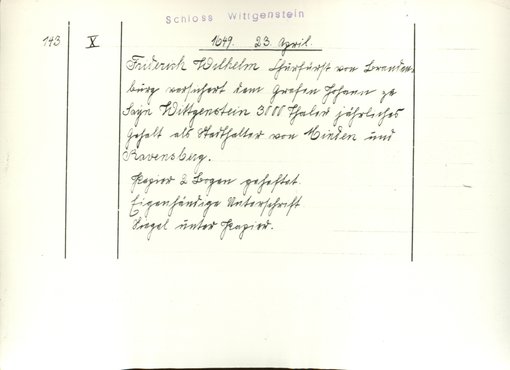 Schloss Wittgenstein
143 X 1649. 23. April.
Friderich Wilhelm Churfürst von Branden-
burg versichert dem Grafen Johann zu
Sayn Wittgenstein 3000 Thaler jährliches
Gehalt als Stadhalter von Minden und
Ravensberg.
Papier 2 Bogen geheftet
Eigenhändige Unterschrift
Siegel unter Papier.